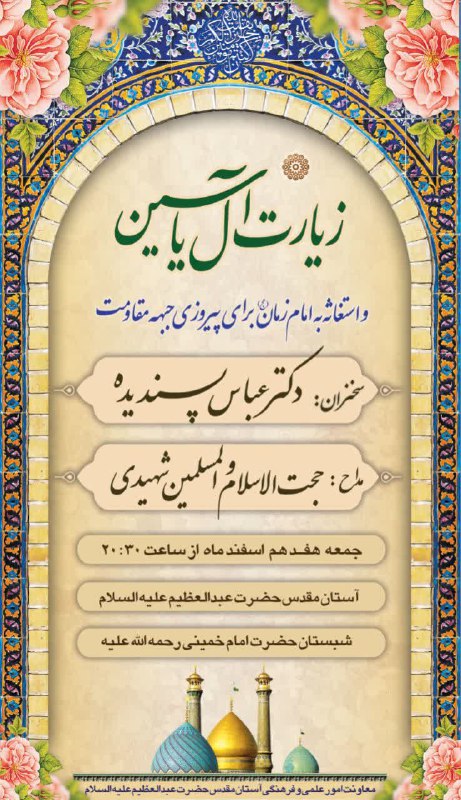 زیارت آل یاسین
و استغاثه به امام زمان (ع) برای پیروزی جبهه مقاومت
سخنران: دکتر عباس پسندیده
مداح: حجت الاسلام والمسلمین شهیدی
جمعه هفدهم اسفند ماه از ساعت ۲۰:۳۰
آستان مقدس حضرت عبدالعظیم علیه السلام
شبستان حضرت امام خمینی رحمه الله علیه
معاونت امور علمی و فرهنگی آستان مقدس حضرت عبدالعظیم علیه السلام